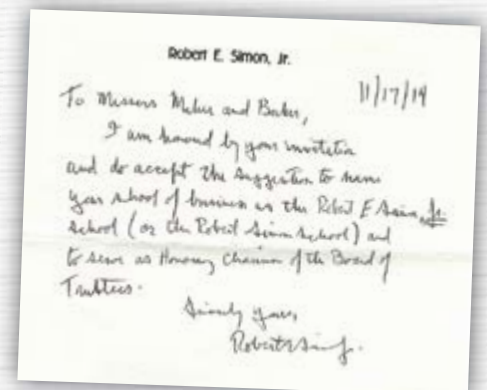 Robert E. Simon, Jr.
11/17/14
To Messrs and
I am honored by your invitation
and do accept the suggestion to name
your school of business as the Robert E Simon, Jr.
school (or the Robert Simon School) and
to serve as Honorary Chairman of the Board of
Trustees.
Sincerely yours,
Robert Simon Jr.